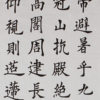 帝避暑乎九
冠山抗殿絕
高閣周建長
仰視則迢遰